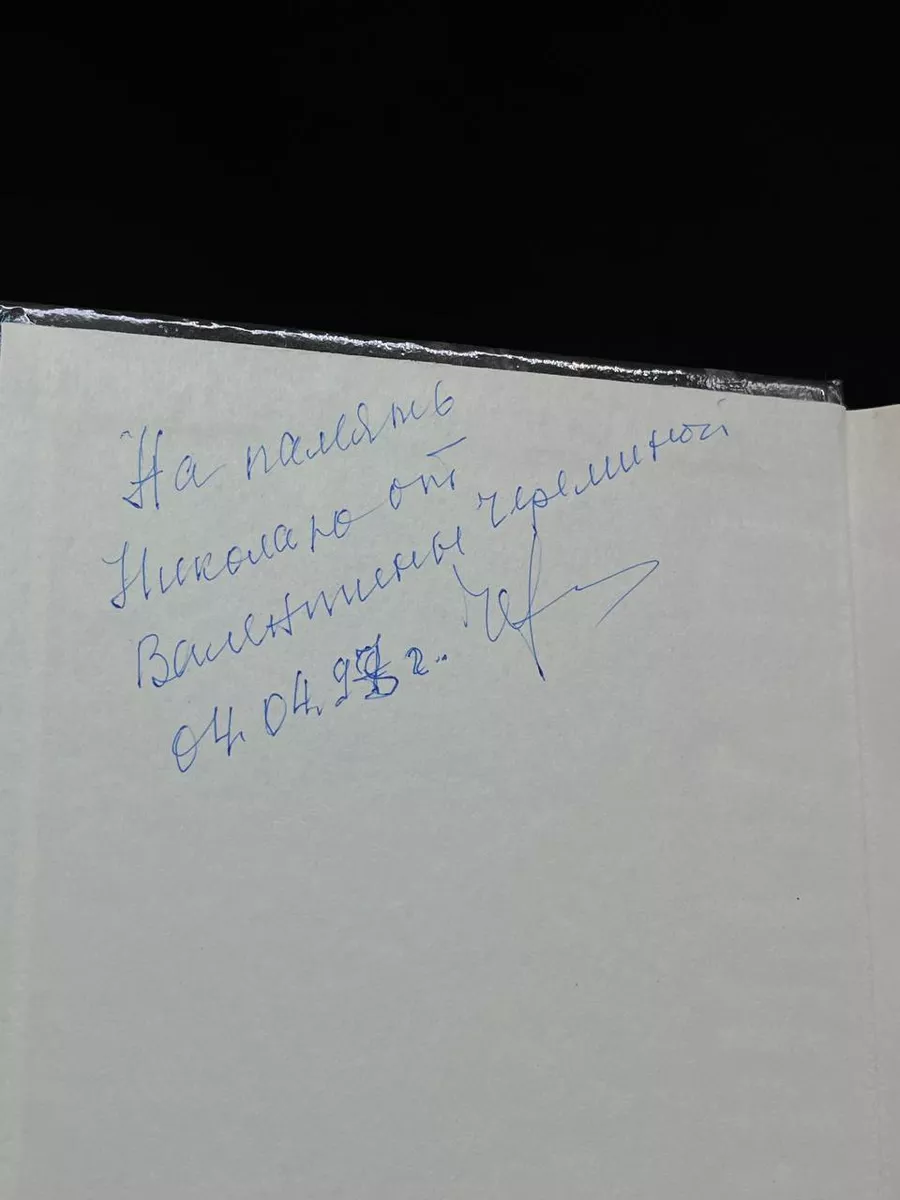 На память
Николаю от
Валентины Череминой
04.04.98 г.